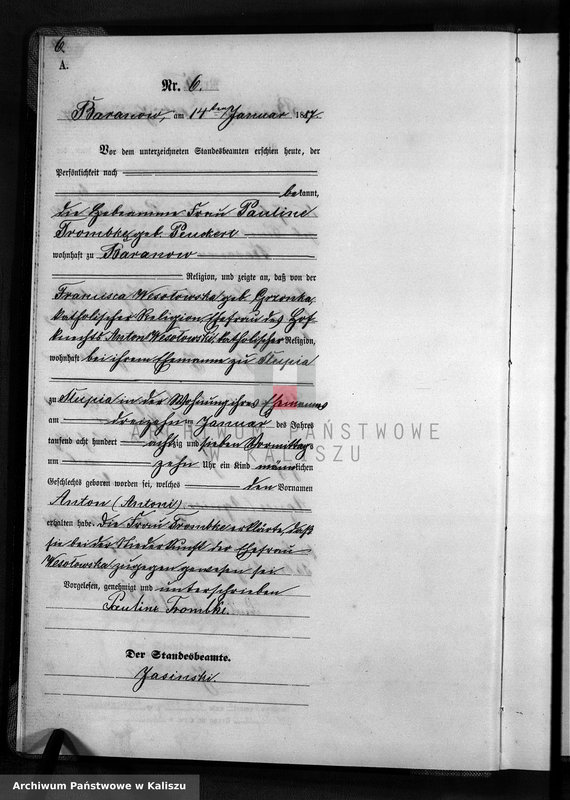 6.
A.
Nr. 6.
Baranow, am 14ten Januar 1887.
Vor dem unterzeichneten Standesbeamten erschien heute, der
Persönlichkeit nach
bekannt,
die Hebeamme Frau Pauline
Trombke geb. Penckert
wohnhaft zu Baranow
Religion, und zeigte an, daß von der
Francisca Wesołowska geb. Gzronka,
katholischer Religion Ehefrau des Hof-
knechts Anton Wesołowski, katholischer Religion,
wohnhaft bei ihrem Ehemanne zu Slupia
zu Slupia in der Wohnung ihres Ehemannes
am dreizehnten Januar des Jahres
tausend acht hundert achtzig und sieben Vormittags
um zehn Uhr ein Kind männlichen
Geschlechts geboren worden sei, welches den Vornamen
Anton (Antoni)
erhalten habe. Die Frau Trombke erklärte, daß
sie bei der Niederkunft der Ehefrau
Wesołowska zugegen gewesen sei
Vorgelesen, genehmigt und unterschrieben
Pauline Trombke.
Der Standesbeamte.
Jasinski.
ARCHIWUM PAŃSTWOWE
W KALISZU
Archiwum Państwowe w Kaliszu